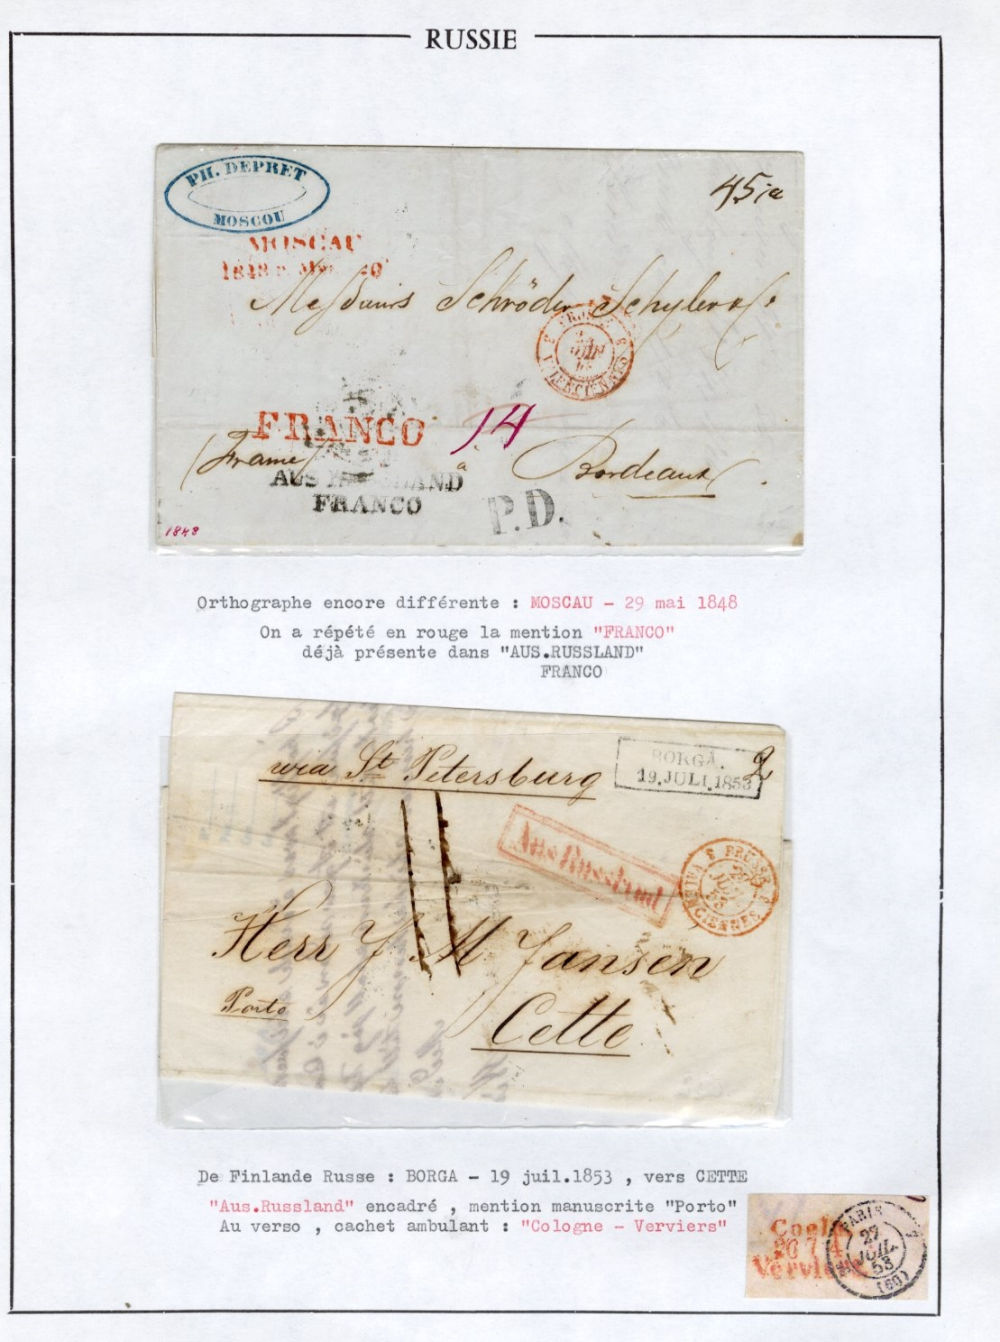 RUSSIE
PH. DEPRET
MOSCOU
45
MOSCAU
1848
Messieurs Schröder Schyler &
PRUSSE
JUIN
FRANCO 14
à Bordeaux
AUS RUSSLAND
FRANCO
P.D.
1848
Orthographe encore différente : MOSCAU - 29 mai 1848
On a répété en rouge la mention "FRANCO"
déjà présente dans "AUS.RUSSLAND"
FRANCO
via St Petersburg
BORGÅ.
19.JULI.1853
2
Aus Russland
PRUSSE
VALENCIENNES
Herr J M Jansen
Porto
Cette
De Finlande Russe : BORGA - 19 juil.1853 , vers CETTE
"Aus.Russland" encadré , mention manuscrite "Porto"
Au verso , cachet ambulant : "Cologne - Verviers"
Coeln
26 7 4
Verviers
PARIS
27
JUIL
53
(60)